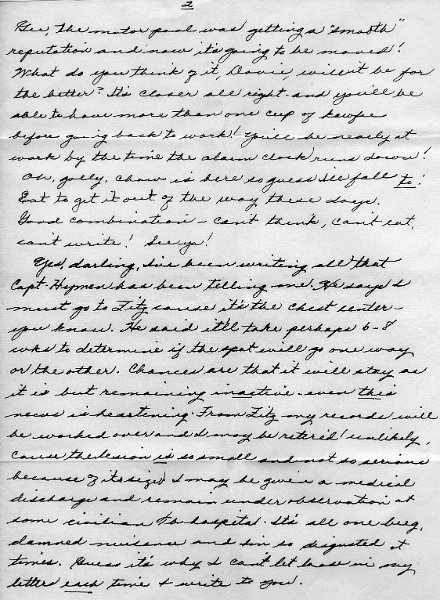 2
Gee, the motor pool was getting a "smooth"
reputation and now it's going to be moved!
What do you think of it, Davie, will it be for
the better? It's closer all right and you'll be
able to have more than one cup of kawfee
before going back to work! You'll be nearly at
work by the time the alarm clock runs down!
Oh, golly, chow is here so guess I'll fall to!
Eat to get it out of the way these days.
Good combination - can't think, can't eat,
can't write! See ya!
Yes, darling, I've been writing all that
Capt. Heymen has been telling me. He says I
must go to Fitz cause it's the chest center -
you know. He said it'll take perhaps 6-8
wks to determine if the spot will go one way
or the other. Chances are that it will stay as
it is but remaining inactive - even this
news is heartening. From Fitz my records will
be worked over and I may be retired! unlikely,
cause the lesion is so small and not so serious
because of its size. I may be given a medical
discharge and remain under observation at
some civilian Tb hospital. It's all one big,
damned nuisence and I'm so disgusted at
times. Guess it's why I can't let loose in my
letters each time I write to you.